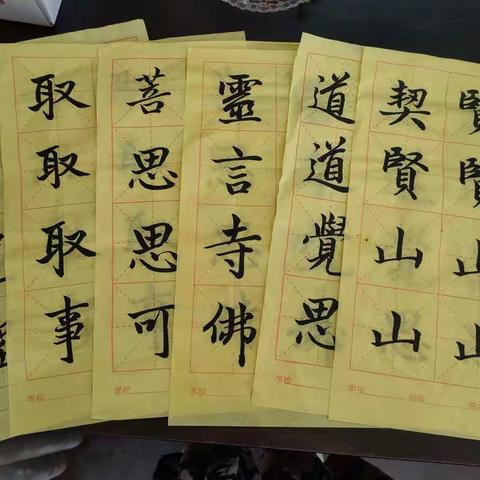 取取取事
学校
菩思思可
学校
靈言寺佛
学校
道道覺思
学校
契賢山山
賢賢山山
学校 班级